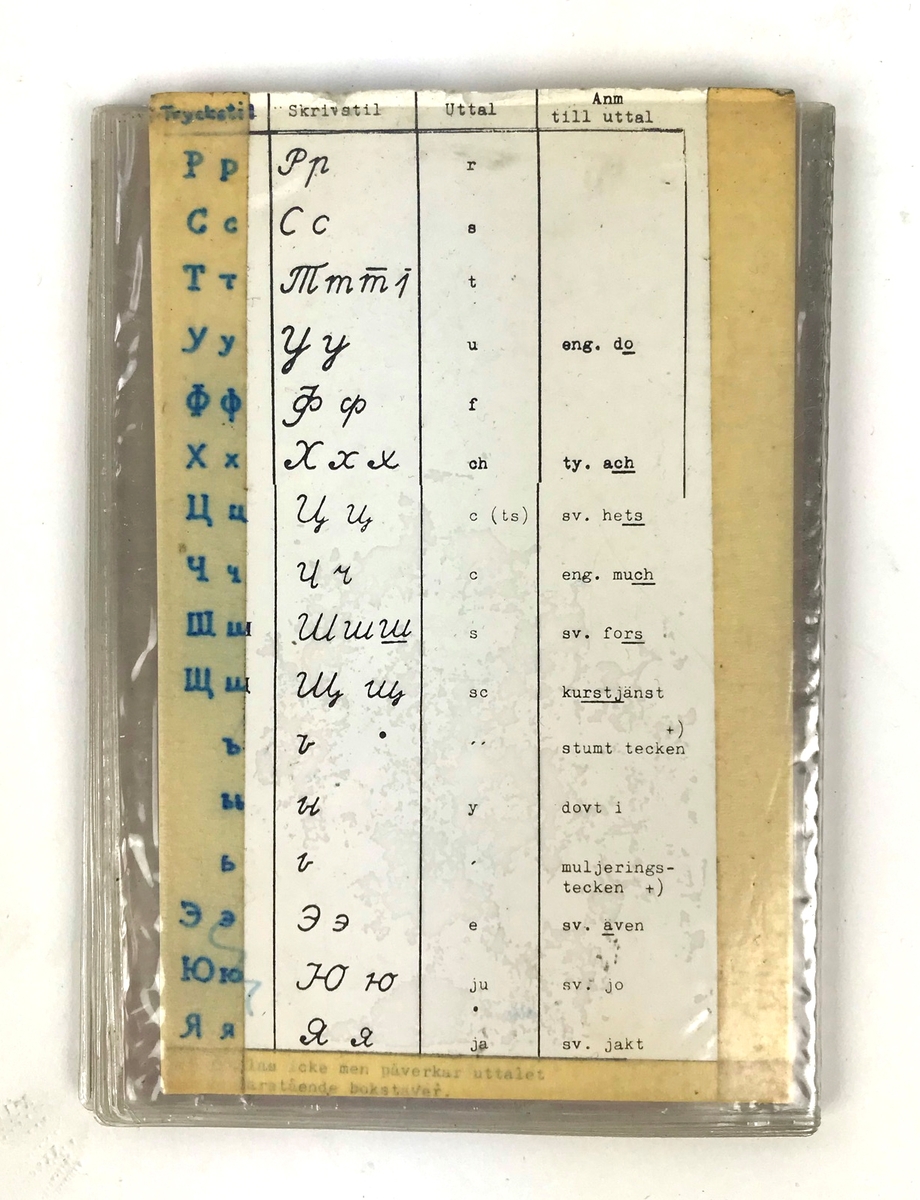 Tryckstil Skrivstil Uttal Anm
till uttal
Р р Р р r
С с С с s
Т т Т т т̅ т t
У у У у u eng. do
Ф ф Ф ф f
Х х Х х х ch ty. ach
Ц ц Ц ц c (ts) sv. hets
Ч ч Ч ч c eng. much
Ш ш Ш ш ш s sv. fors
Щ щ Щ щ sc kurstjänst
+)
ъ ъ ´´ stumt tecken
ы ы y dovt i
ь ь ´ muljerings-
tecken +)
Э э Э э e sv. även
Ю ю Ю ю ju sv. jo
Я я Я я ja sv. jakt
icke men påverkar uttalet
bokstaver.